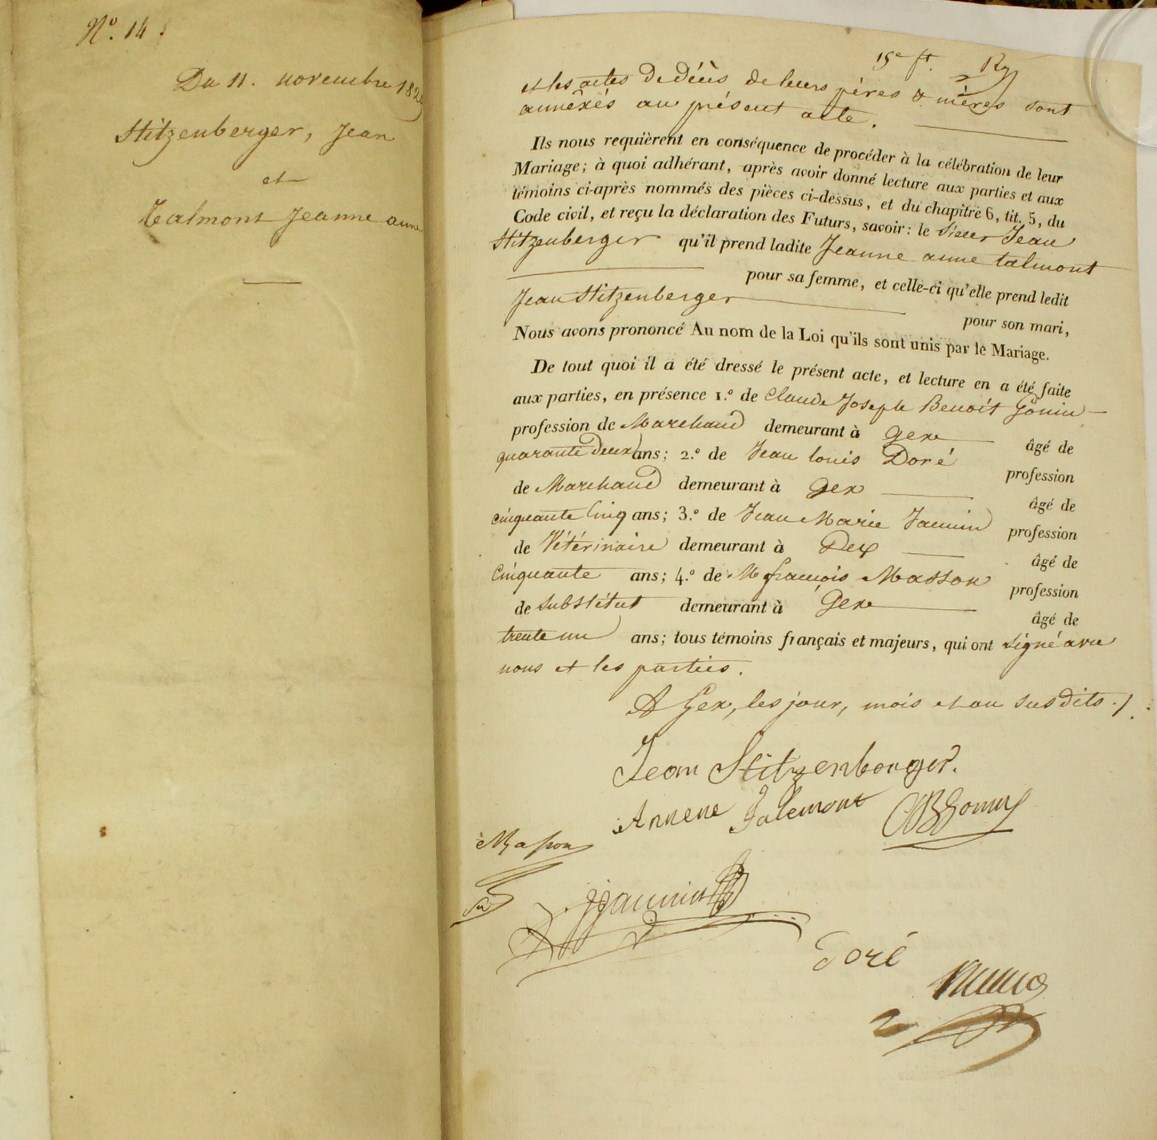 N.o 14.
Du 11. novembre 182
Stitzenberger, Jean
et
Talmont Jeanne anne
15e ft.
et les actes de décès de leurs pères & mères sont
annéxés au présent acte.
Ils nous requièrent en conséquence de procéder à la célébration de leur
Mariage; à quoi adhérant, après avoir donné lecture aux parties et aux
témoins ci-après nommés des pièces ci-dessus, et du chapitre 6, tit. 5, du
Code civil, et reçu la déclaration des Futurs, savoir: le Sieur Jean
Stitzenberger qu'il prend ladite Jeanne anne talmont
pour sa femme, et celle-ci qu'elle prend ledit
Jean Stitzenberger
pour son mari,
Nous avons prononcé Au nom de la Loi qu'ils sont unis par le Mariage.
De tout quoi il a été dressé le présent acte, et lecture en a été faite
aux parties, en présence 1.o de Claude Joseph Benoit Gonin
profession de Marchand demeurant à gex âgé de
quarante deux ans; 2.o de Jean louis Doré profession
de Marchand demeurant à gex âgé de
cinquante Cinq ans; 3.o de Jean Marie Jaunin profession
de Vétérinaire demeurant à Gex âgé de
Cinquante ans; 4.o de M françois Masson profession
de substitut demeurant à Gex âgé de
trente un ans; tous témoins français et majeurs, qui ont signé avec
nous et les parties.
A Gex, les jour, mois et an susdits.
Jean Stitzenberger.
Annene Talemont
CJBGonin
Masson
Jaunin
Doré